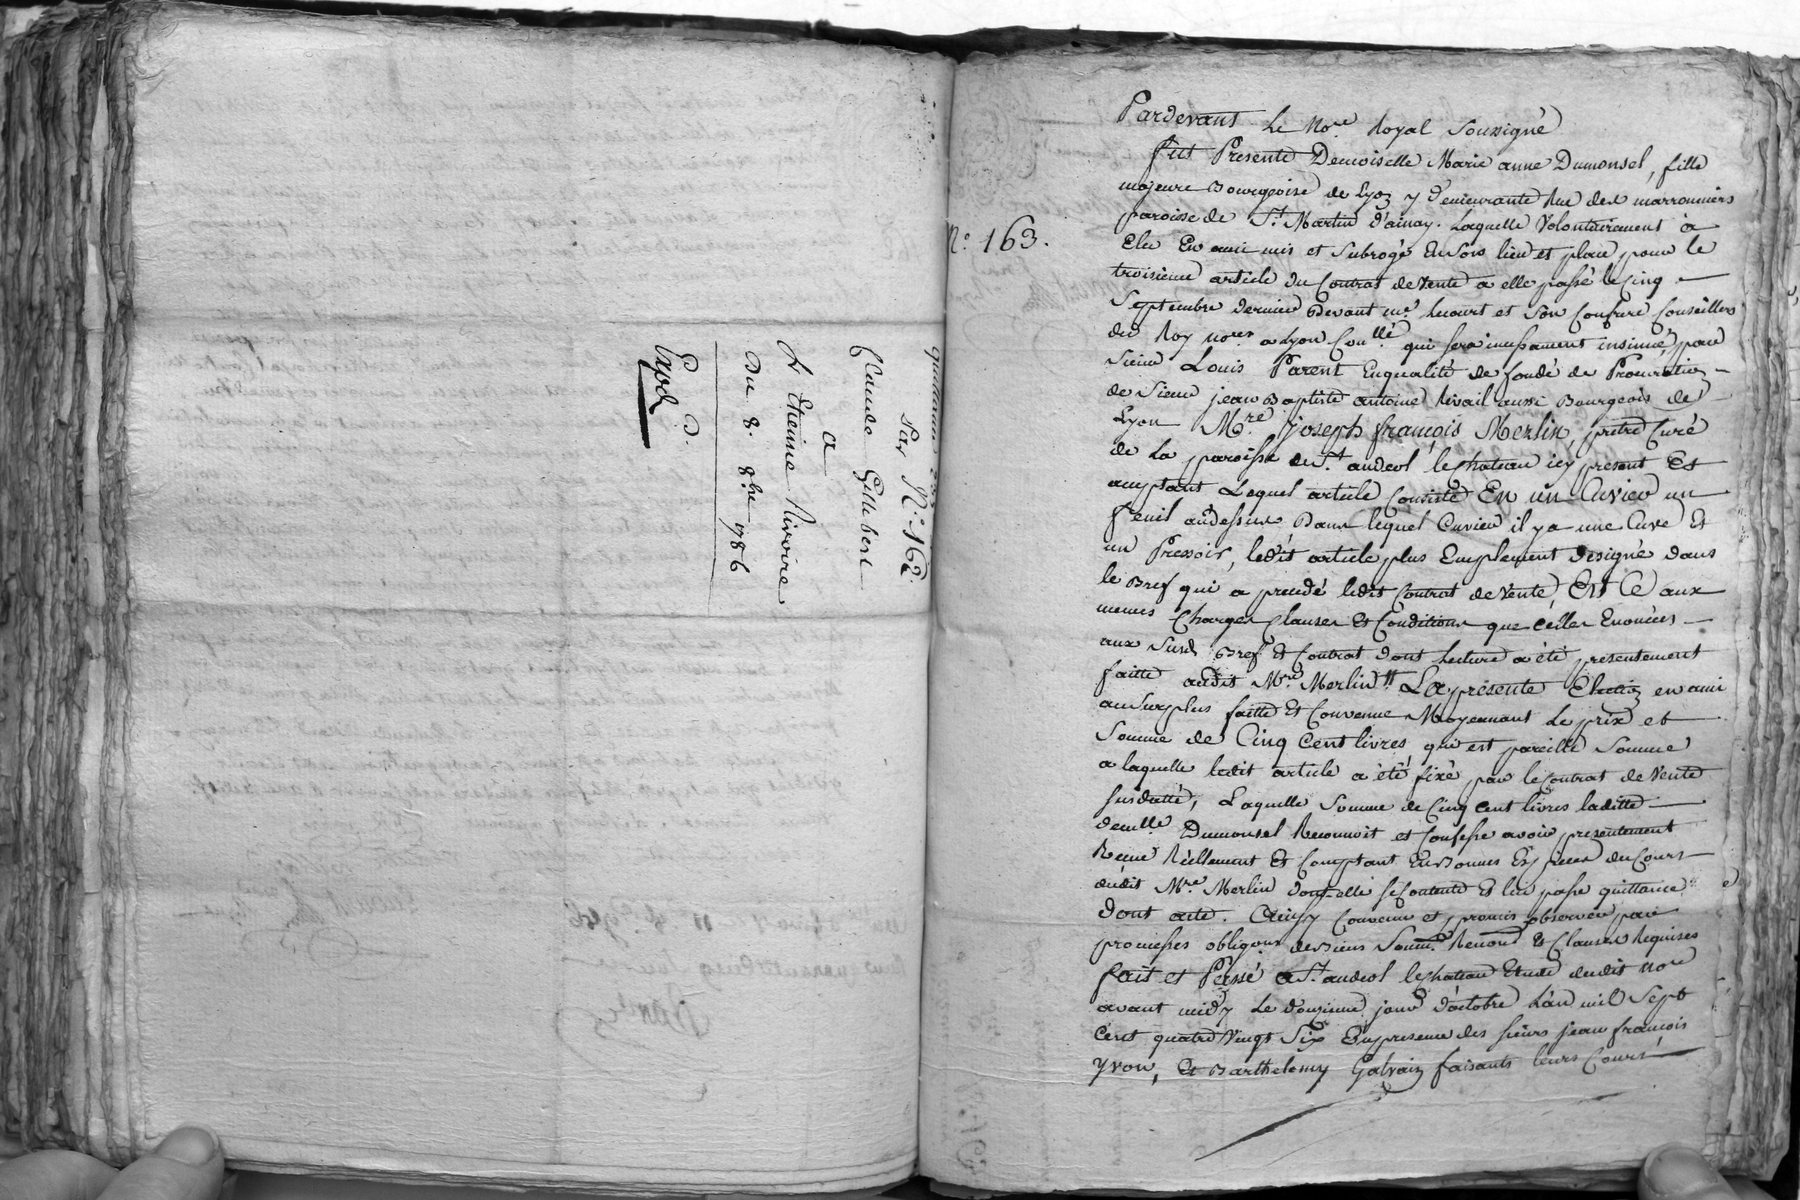 Par N.° 162
Claude Gillibert
a
Etienne Rivoire
Du 8. 8bre 1786
Expd
N.° 163.
Pardevant Le No.re Royal Soussigné
fut Presente Demoiselle Marie anne Dumonsel, fille
majeure Bourgeoise de Lyon y demeurante Rue des marronniers
paroisse de St. Martin d'ainay. Laquelle Volontairement à
Elu En ami mis et Subrogé En Son lieu et place pour le
troisieme article du Contrat de Vente a elle passé le Cinq
Septembre dernier Devant me. Lecourt et Son Confrere Conseillers
du Roy no.res a Lyon Con.llé qui sera incessament insinué, par
Sieur Louis Parent En qualité de fondé de Procuration
de Sieur jean Baptiste antoine Rivail aussi Bourgeois de
Lyon M.re joseph françois Merlin, pretre Curé
de La paroisse de St. andeol le chateau icy present Et
acceptant Lequel article Consiste En un Cuvier un
fenil au dessus Dans lequel Cuvier il y a une Cuve Et
un Pressoir, ledit article plus Emplement designé dans
le Bref qui a precedé ledit Contrat de Vente, Et Ce aux
memes Charges Clauses Et Conditions que Celles Enoncées
aux Susd. Bref Et Contrat dont Lecture a été presentement
faitte audit M.re Merlin La presente Election en ami
au Surplus faitte Et Convenue Moyennant Le prix et
Somme de Cinq Cent livres qui est pareille Somme
a laquelle ledit article a été fixé par le Contrat de Vente
susdatté, Laquelle Somme de Cinq Cent livres laditte
dem.lle Dumonsel Reconnoit et Confesse avoir presentement
Reçue Réellement Et Comptant En Bonnes Especes du Cours
dudit M.re Merlin dont elle se Contente Et lui passe quittance
Dont acte. Ainsy Convenu et promis observer par
promesses obligons. de Biens Soum.° Renon.° Et Clauses Requises
fait et Passé a St. andeol le chateau Etude dudit No.re
avant midy Le douzieme jour d'octobre L'an mil Sept
Cent quatre Vingt Six En presence des sieurs jean françois
Yvon, Et Barthelemy Galvain faisants leurs Cours